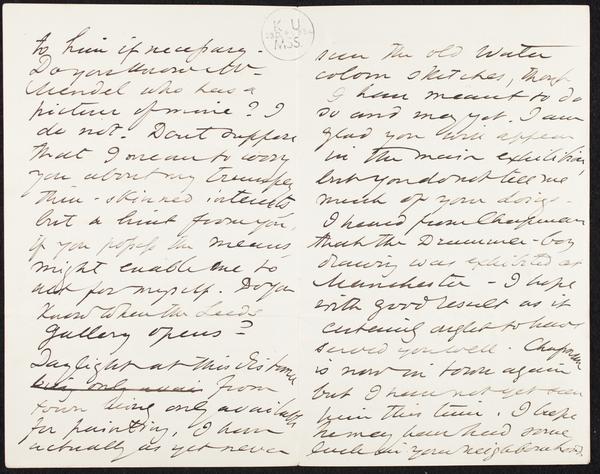 K U
MSS.
to him if necessary.
Do you know Mr
Mendel who has a
picture of mine? I
do not. Dont suppose
that I mean to worry
you about my trumpery
thin-skinned interests
but a hint from you,
if you possess the means,
might enable me to
act for myself. Do you
know when the Leeds
gallery opens?
Daylight at this distance
being only avai from
town being only available
for painting, I have
actually as yet never
seen the old Water
colour sketches, though
I have meant to do
so and may yet. I am
glad you will appear
in the main exhibition,
but you do not tell me
much of your doings.
I heard from Chapman
that the Drummer-boy
drawing was exhibited at
Manchester - I hope
with good result as it
certainly ought to have
served you well. Chapman
is now in town again
but I have not yet seen
him this time. I hope
he may have had some
luck in your neighbourhood.